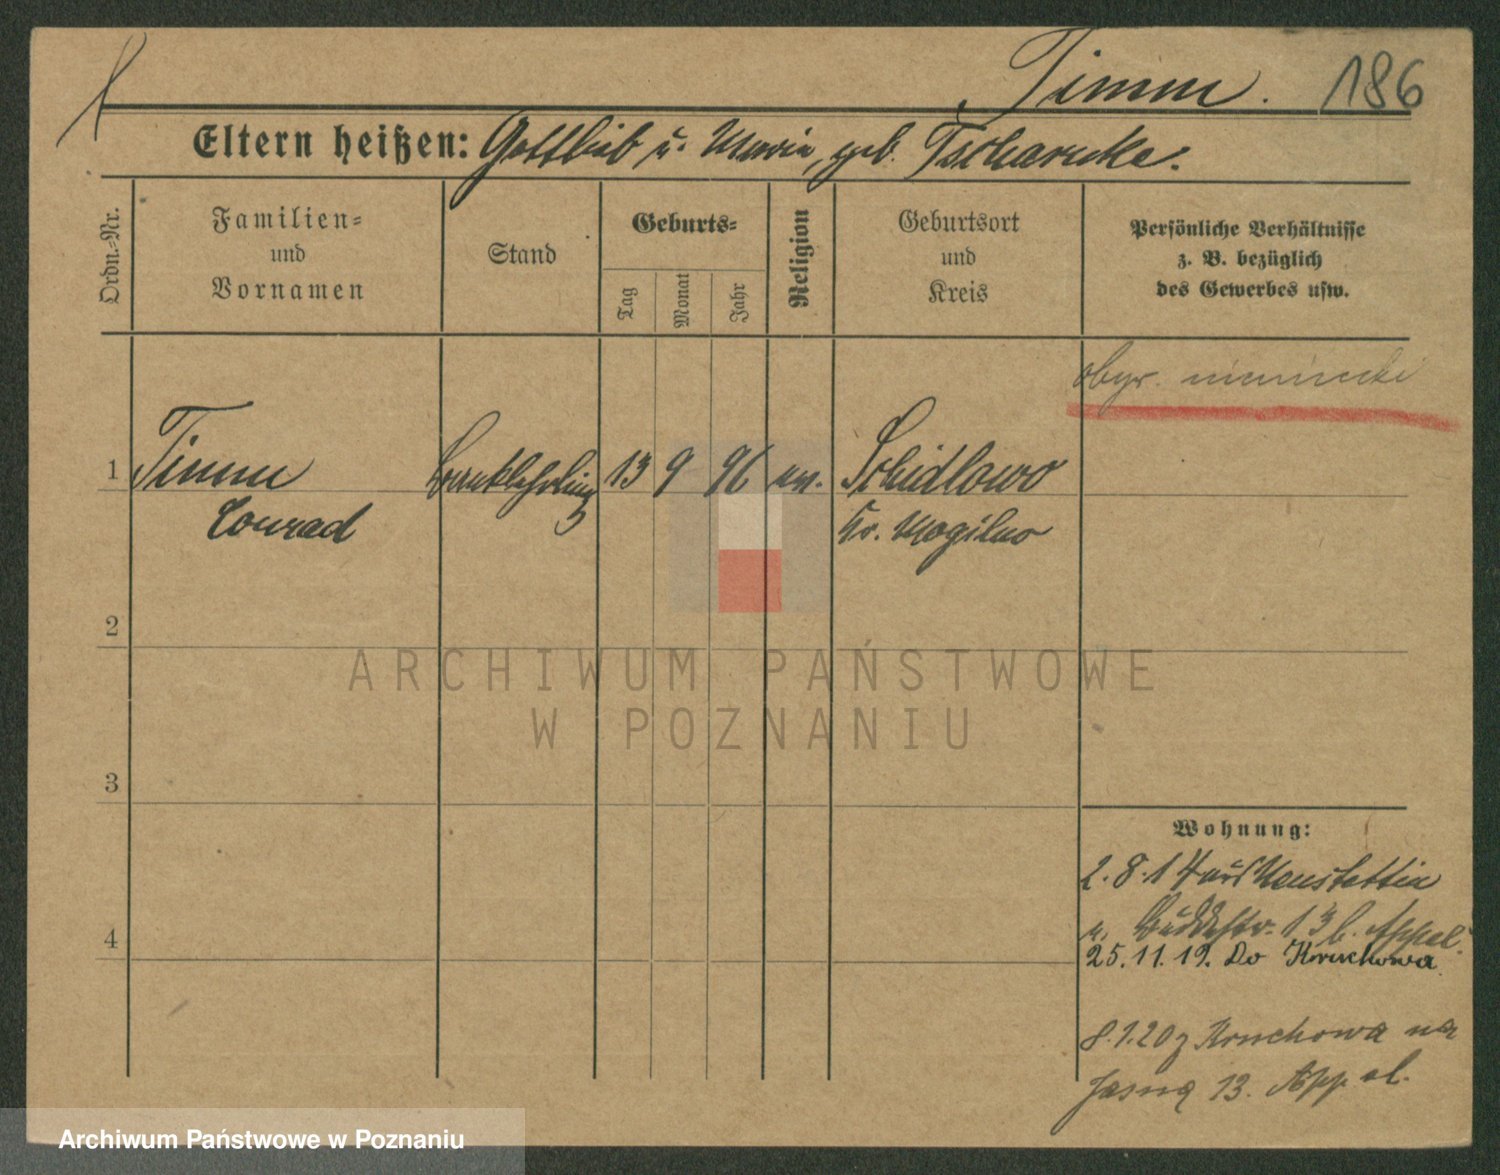 Timm. 186
Eltern heißen: Gottlieb u. Maria, geb. Tscharncke.
Ordn.-Nr.
Familien-
und
Vornamen
Stand
Geburts-
Tag
Monat
Jahr
Religion
Geburtsort
und
Kreis
Persönliche Verhältnisse
z. B. bezüglich
des Gewerbes usw.
obyw. niemiecki
1 Timm Banklehrling 13 9 96 ev. Schidlowo
Conrad Kr. Mogilno
2
ARCHIWUM PAŃSTWOWE
W POZNANIU
3
Wohnung:
2.8.14 aus Neustettin
n. Buddestr. 13 b. Appel.
4
25.11.19. Do Kruchowa
8.1.20 z Kruchowa na
Jasną 13. Appel.
Archiwum Państwowe w Poznaniu